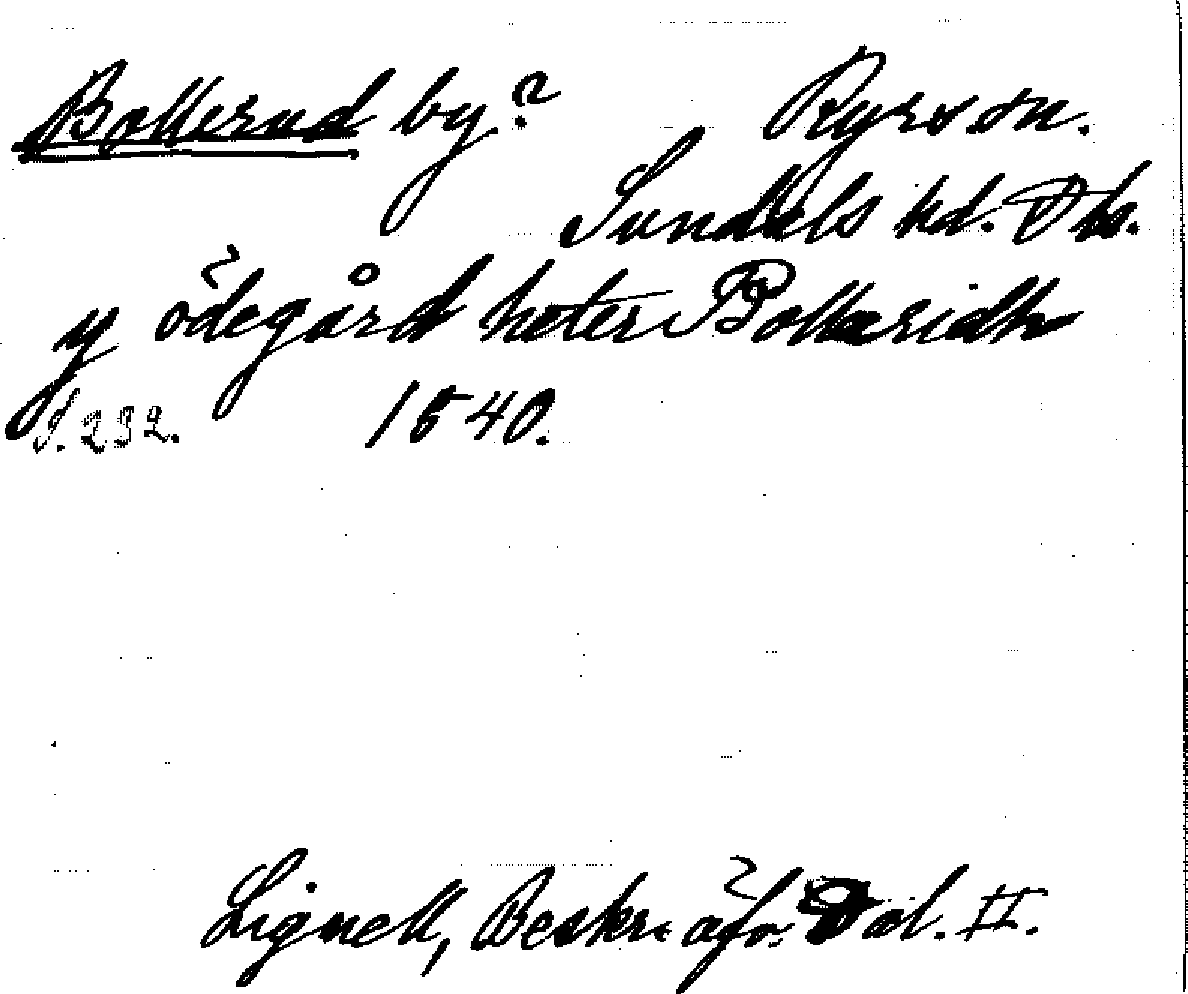 Bollerud by? Ryrs sn.
Sundals hd. Dls.
y ödegård heter Bollaridh
S. 232. 1540.
Lignell, Beskr. öfv. Dal. II.